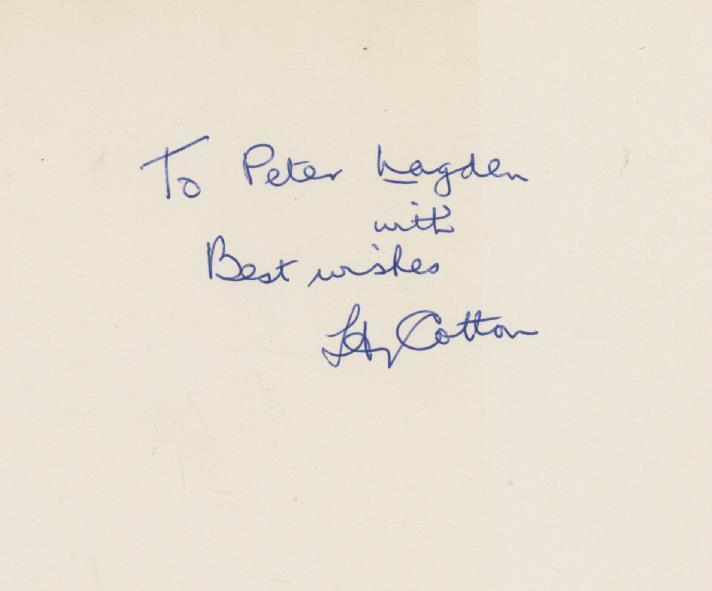 To Peter Lagden
with
Best wishes
Cotton